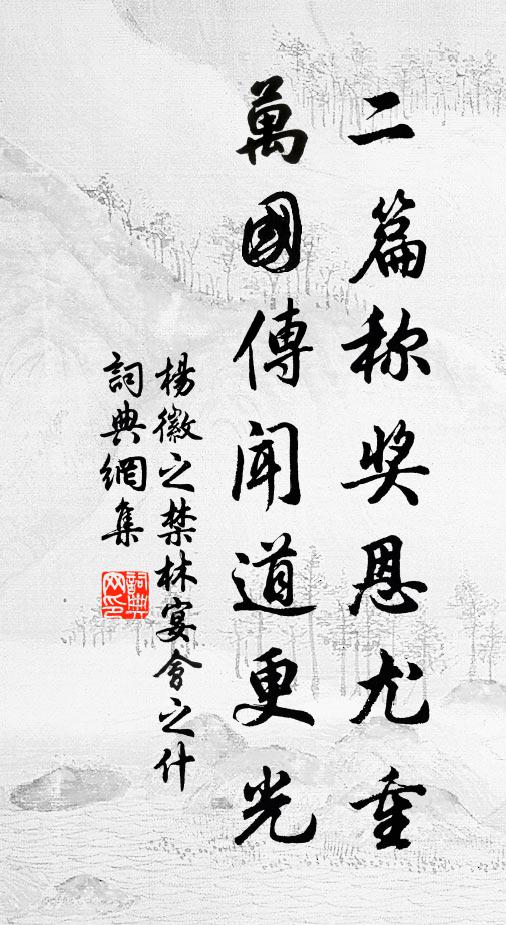 二篇称奖恩尤重
萬國傳闻道更光
楊徽之禁林宴會之什
詞典網集
詞典网印